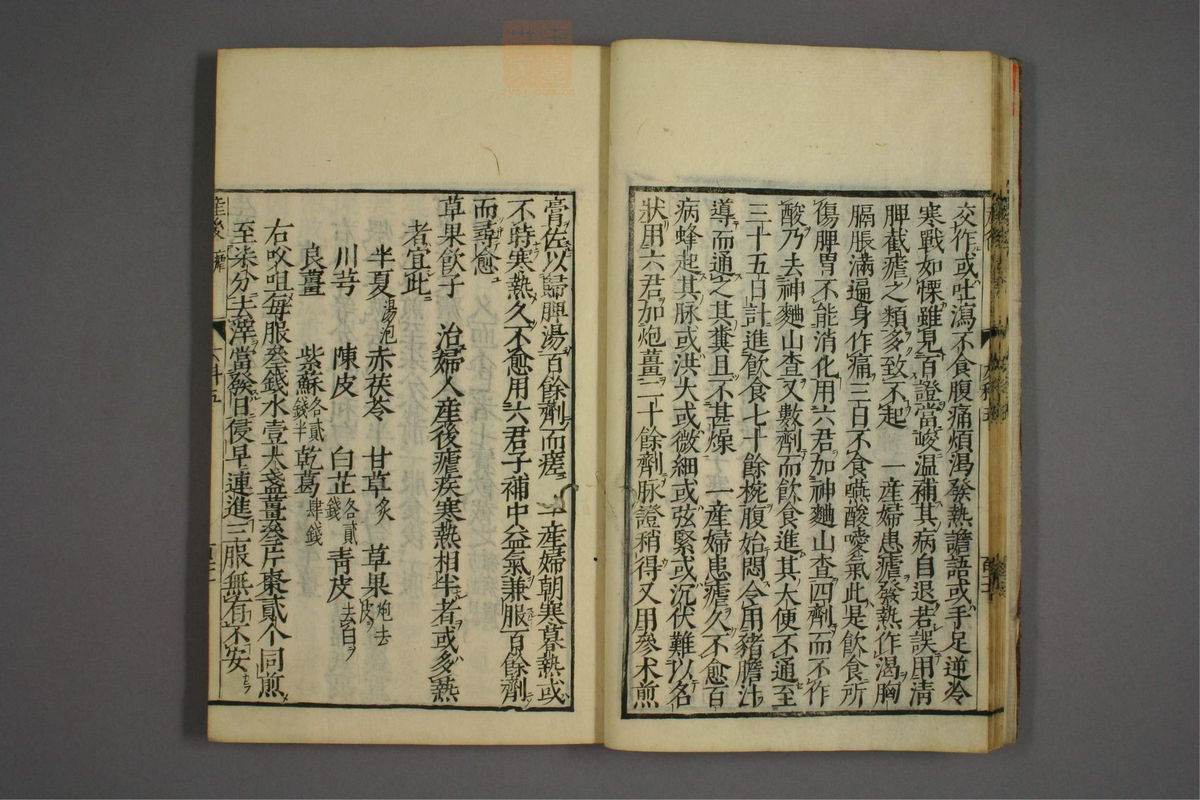 交作或吐瀉不食腹痛煩渴發熱譫語或手足逆冷
寒戰如慄雖見百證當峻温補其病自退若誤用清
脾截瘧之類多致不起　一產婦患瘧發熱作渴胸
膈脹滿遍身作痛三日不食嚥酸噯氣此是飲食所
傷脾胃不能消化用六君加神麯山查四劑而不作
酸乃去神麯山查又數劑而飲食進其大便不通至
三十五日計進飲食七十餘椀腹始悶令用豬膽汁
導而通之其糞且不甚燥　一產婦患瘧久不愈百
病蜂起其脉或洪大或微細或弦緊或沉伏難以名
狀用六君加炮薑二十餘劑脉證稍得又用參术煎
膏佐以歸脾湯百餘劑而瘥　一產婦朝寒暮熱或
不時寒熱久不愈用六君子補中益氣兼服百餘劑
而尋愈
草果飲子　治婦人產後瘧疾寒熱相半者或多熱
者宜此
半夏湯泡　赤茯苓　甘草炙　草果炮去皮
川芎　陳皮　白芷各貳錢　青皮去白
良薑　紫蘇各貳錢半　乾葛肆錢
右㕮咀每服叄錢水壹大盞薑叄片棗貳个同煎
至柒分去滓當發日侵早連進三服無有不安
產後